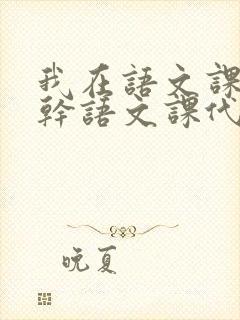 我在語文課
幹語文課代
晚夏